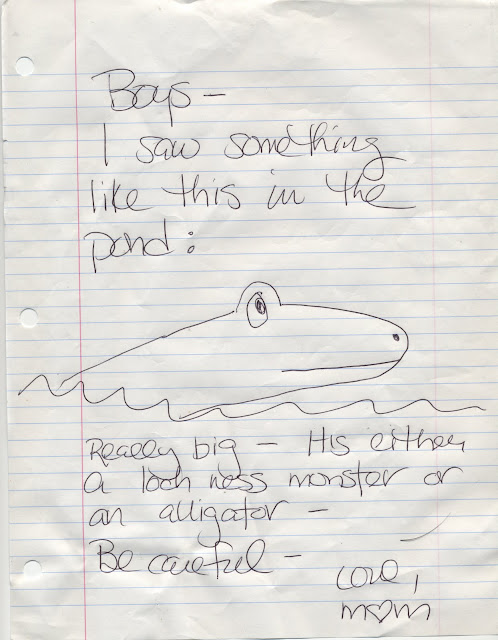 Boys —
I saw something
like this in the
pond:
Really big — His either
a loch ness monster or
an alligator —
Be careful —
Love,
mom